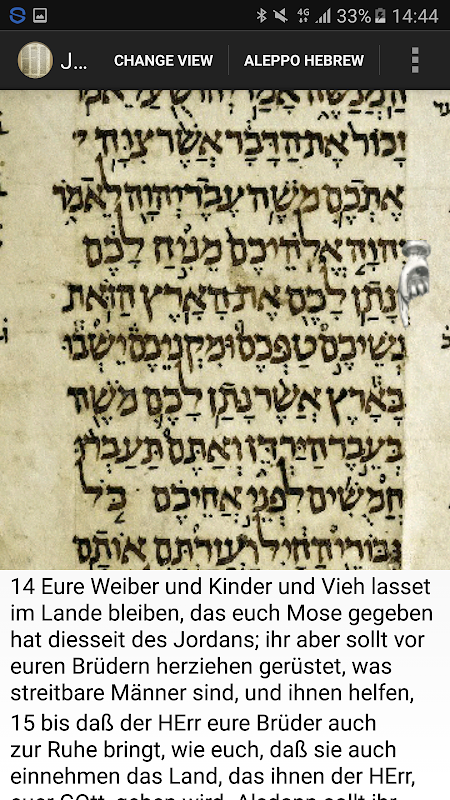 4G 33% 14:44
J… CHANGE VIEW ALEPPO HEBREW
זכור את הדבר אשר צוה
אתכם משה עבד יהוה לאמר
יהוה אלהיכם מניח לכם
ונתן לכם את הארץ הזאת
נשיכם טפכם ומקניכם ישבו
בארץ אשר נתן לכם משה
בעבר הירדן ואתם תעברו
חמשים לפני אחיכם כל
גבורי החיל ועזרתם אותם
14 Eure Weiber und Kinder und Vieh lasset
im Lande bleiben, das euch Mose gegeben
hat diesseit des Jordans; ihr aber sollt vor
euren Brüdern herziehen gerüstet, was
streitbare Männer sind, und ihnen helfen,
15 bis daß der HErr eure Brüder auch
zur Ruhe bringt, wie euch, daß sie auch
einnehmen das Land, das ihnen der HErr,